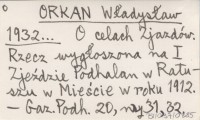 ORKAN Władysław
1932... O celach Zjazdów.
Rzecz wygłoszona na I
Zjeździe Podhalan w Ratu-
szu w Mieście w roku 1912.
— Gaz. Podh. 20, nry 31, 32